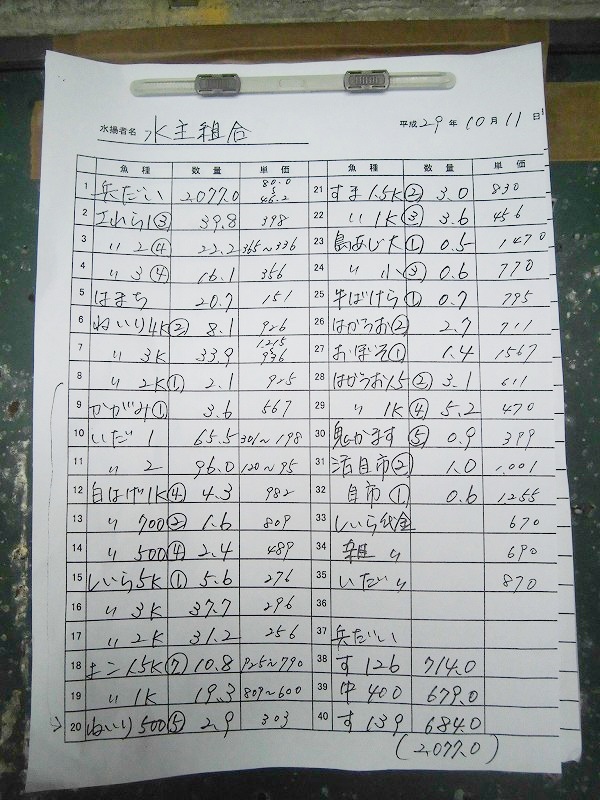 水揚者名 水主組合
平成29年10月11日
魚種 数量 単価
1 兵だい 2077.0 80.0 〜 46.2
2 えれら1③ 39.8 398
3 〃 2④ 22.2 365~336
4 〃 3④ 16.1 356
5 はまち 20.7 151
6 ねいり4K② 8.1 926
7 〃 3K 33.9 1,215 〜 936
8 〃 2K① 2.1 925
9 かがみ① 3.6 567
10 いだ 1 65.5 301~198
11 〃 2 96.0 120~95
12 白はげ1K④ 4.3 982
13 〃 700② 1.6 809
14 〃 500④ 2.4 489
15 しいら5K① 5.6 276
16 〃 3K 37.7 296
17 〃 2K 31.2 256
18 1.5K⑦ 10.8 925~790
19 〃 1K 19.3 809~600
20 ねいり500⑤ 2.9 303
魚種 数量 単価
21 すま 1.5K② 3.0 830
22 〃 1K③ 3.6 456
23 島あじ大① 0.5 1470
24 〃 小③ 0.6 770
25 牛ばけら① 0.7 795
26 はがつお② 2.7 711
27 おぼそ① 1.4 1567
28 はがつお1.5② 3.1 611
29 〃 1K④ 5.2 470
30 鬼かます⑤ 0.9 399
31 活目市② 1.0 1,001
32 目市① 0.6 1255
33 しいら代金 670
34 〃 690
35 いだ〃 870
36
37 兵だい
38 す126 714.0
39 中400 679.0
40 す139 684.0
(2,077.0)